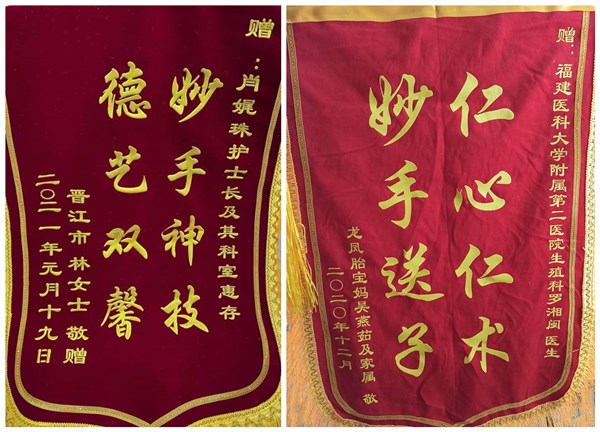 赠：肖娓珠护士长及其科室惠存
妙手神技
德艺双馨
晋江市林女士 敬赠
二〇二一年元月十九日
赠：福建医科大学附属第二医院生殖科罗湘闽医生
仁心仁术
妙手送子
龙凤胎宝妈吴燕茹及家属 敬
二〇二〇年十二月